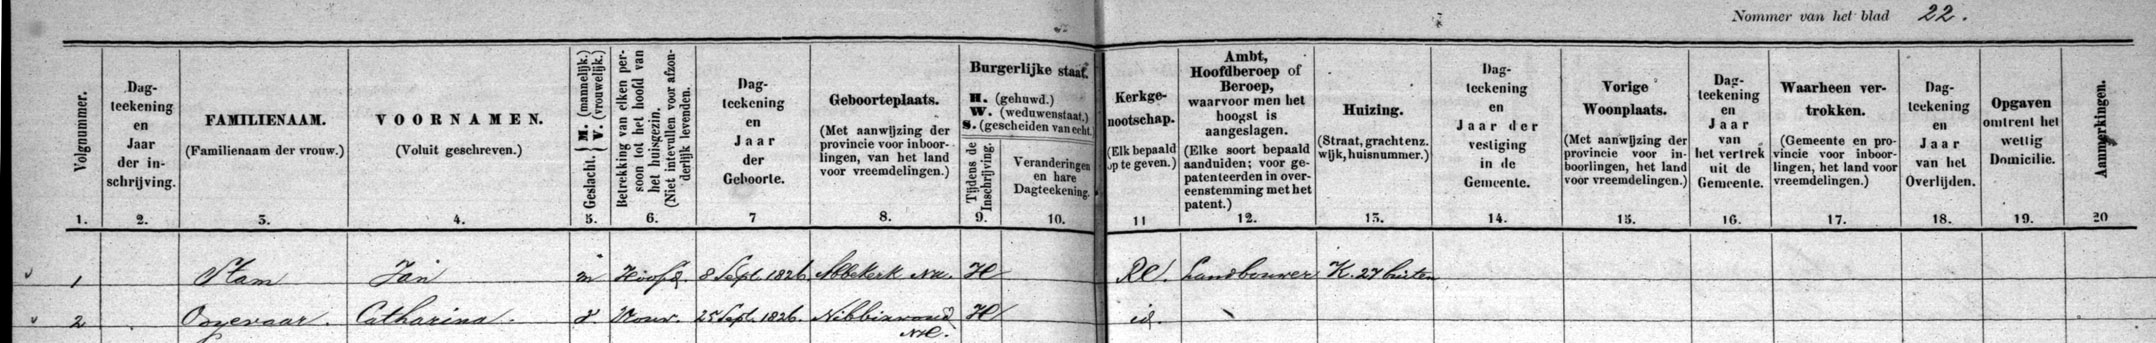 Nommer van het blad 22.
Volgnummer.
1.
Dag-
teekening
en
Jaar
der in-
schrijving.
2.
FAMILIENAAM.
(Familienaam der vrouw.)
3.
VOORNAMEN.
(Voluit geschreven.)
4.
Geslacht. { M. (mannelijk.) V. (vrouwelijk.)
5.
Betrekking van elken per-
soon tot het hoofd van
het huisgezin.
(Niet intevullen voor afzon-
derlijk levenden.
6.
Dag-
teekening
en
Jaar
der
Geboorte.
7
Geboorteplaats.
(Met aanwijzing der
provincie voor inboor-
lingen, van het land
voor vreemdelingen.)
8.
Burgerlijke staat.
H. (gehuwd.)
W. (weduwenstaat.)
S. (gescheiden van echt.)
Tijdens de
Inschrijving.
9.
Veranderingen
en hare
Dagteekening.
10.
Kerkge-
nootschap.
(Elk bepaald
op te geven.)
11
Ambt,
Hoofdberoep of
Beroep,
waarvoor men het
hoogst is
aangeslagen.
(Elke soort bepaald
aanduiden; voor ge-
patenteerden in over-
eenstemming met het
patent.)
12.
Huizing.
(Straat, gracht enz.
wijk, huisnummer.)
13.
Dag-
teekening
en
Jaar der
vestiging
in de
Gemeente.
14.
Vorige
Woonplaats.
(Met aanwijzing der
provincie voor in-
boorlingen, het land
voor vreemdelingen.)
15.
Dag-
teekening
en
Jaar
van
het vertrek
uit de
Gemeente.
16.
Waarheen ver-
trokken.
(Gemeente en pro-
vincie voor inboor-
lingen, het land voor
vreemdelingen.)
17.
Dag-
teekening
en
Jaar
van het
Overlijden.
18.
Opgaven
omtrent het
wettig
Domicilie.
19.
Aanmerkingen.
20
1 Stam Jan m Hoofd. 8 Sept. 1826 Abbekerk NH. H RC. Landbouwer K. 27 buiten
2 Ooyevaar. Catharina. v. Vrouw. 25 Sept. 1826. Nibbixwoud H id.
NH.